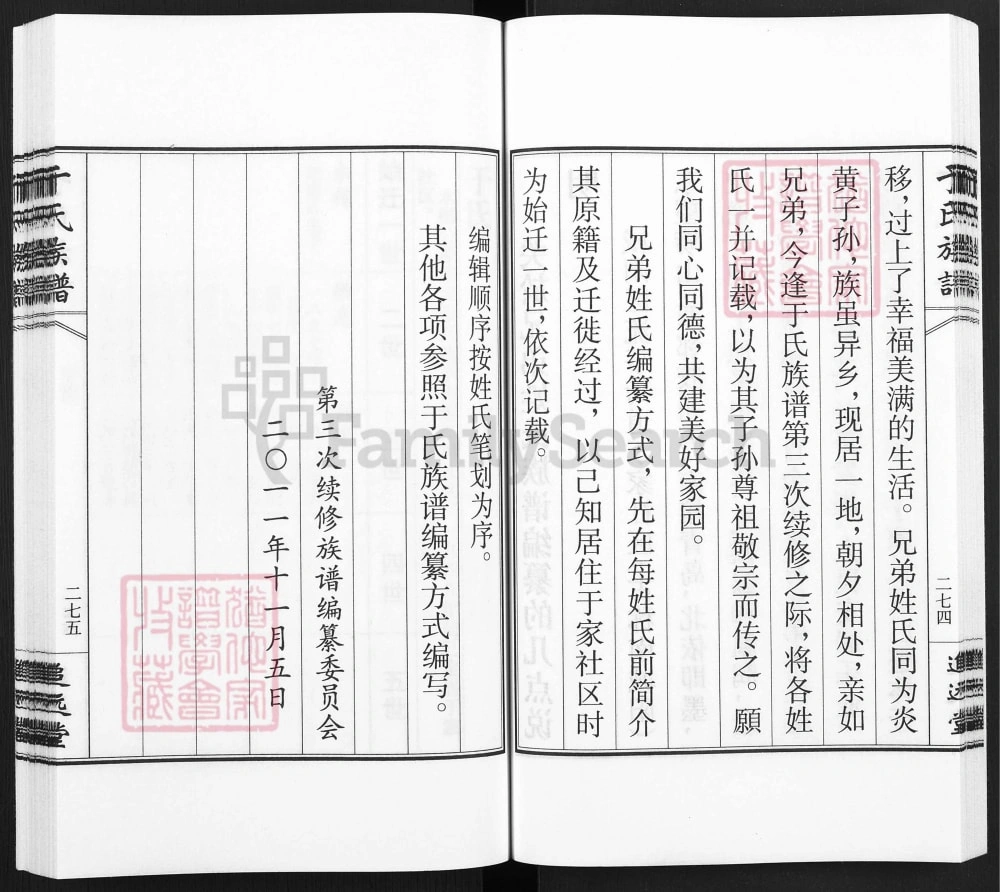 于氏族谱
二七四
追远堂
移，过上了幸福美满的生活。兄弟姓氏同为炎
黄子孙，族虽异乡，现居一地，朝夕相处，亲如
兄弟，今逢于氏族谱第三次续修之际，将各姓
氏一并记载，以为其子孙尊祖敬宗而传之。願
我们同心同德，共建美好家园。
兄弟姓氏编纂方式，先在每姓氏前简介
其原籍及迁徙经过，以己知居住于家社区时
为始迁一世，依次记载。
编辑顺序按姓氏笔划为序。
其他各项参照于氏族谱编纂方式编写。
第三次续修族谱编纂委员会
二〇一一年十一月五日
于氏族谱
二七五
追远堂
FamilySearch